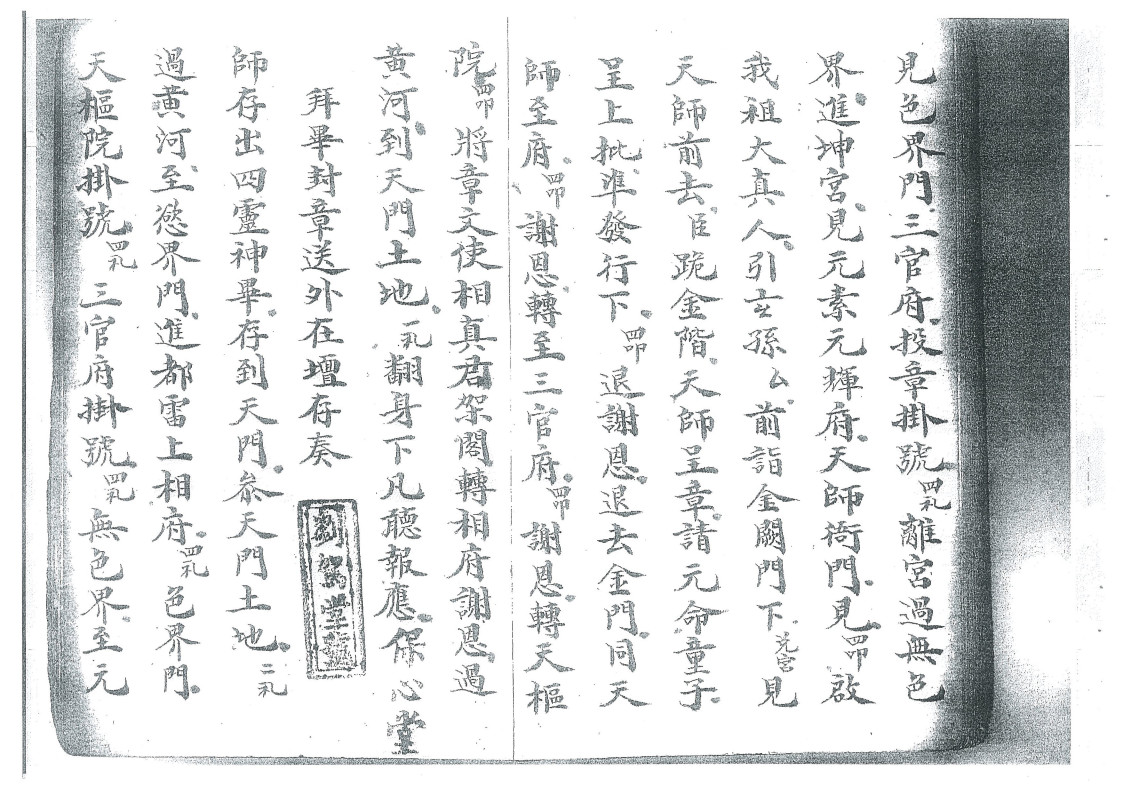 見色界門三官府投章掛號四礼離宮過無色
界進坤宮見元素元輝府天師衙門見四叩啟
我祖大真人引玄孫厶前詣金闕門下兊宮見
天師前去臣跪金階天師呈章請元命童子
呈上批準發行下四叩退謝恩退去金門同天
師至府四叩謝恩轉至三官府四叩謝恩轉天樞
院四叩將章文使相真君架閣轉相府謝恩過
黃河到天門土地一礼翻身下凡聽報應保心堂
拜畢封章送外在壇存奏
師存出四靈神畢存到天門叅天門土地二礼
過黃河至慾界門進都雷上相府四礼色界門
天樞院掛號四礼三官府掛號四礼無色界至元